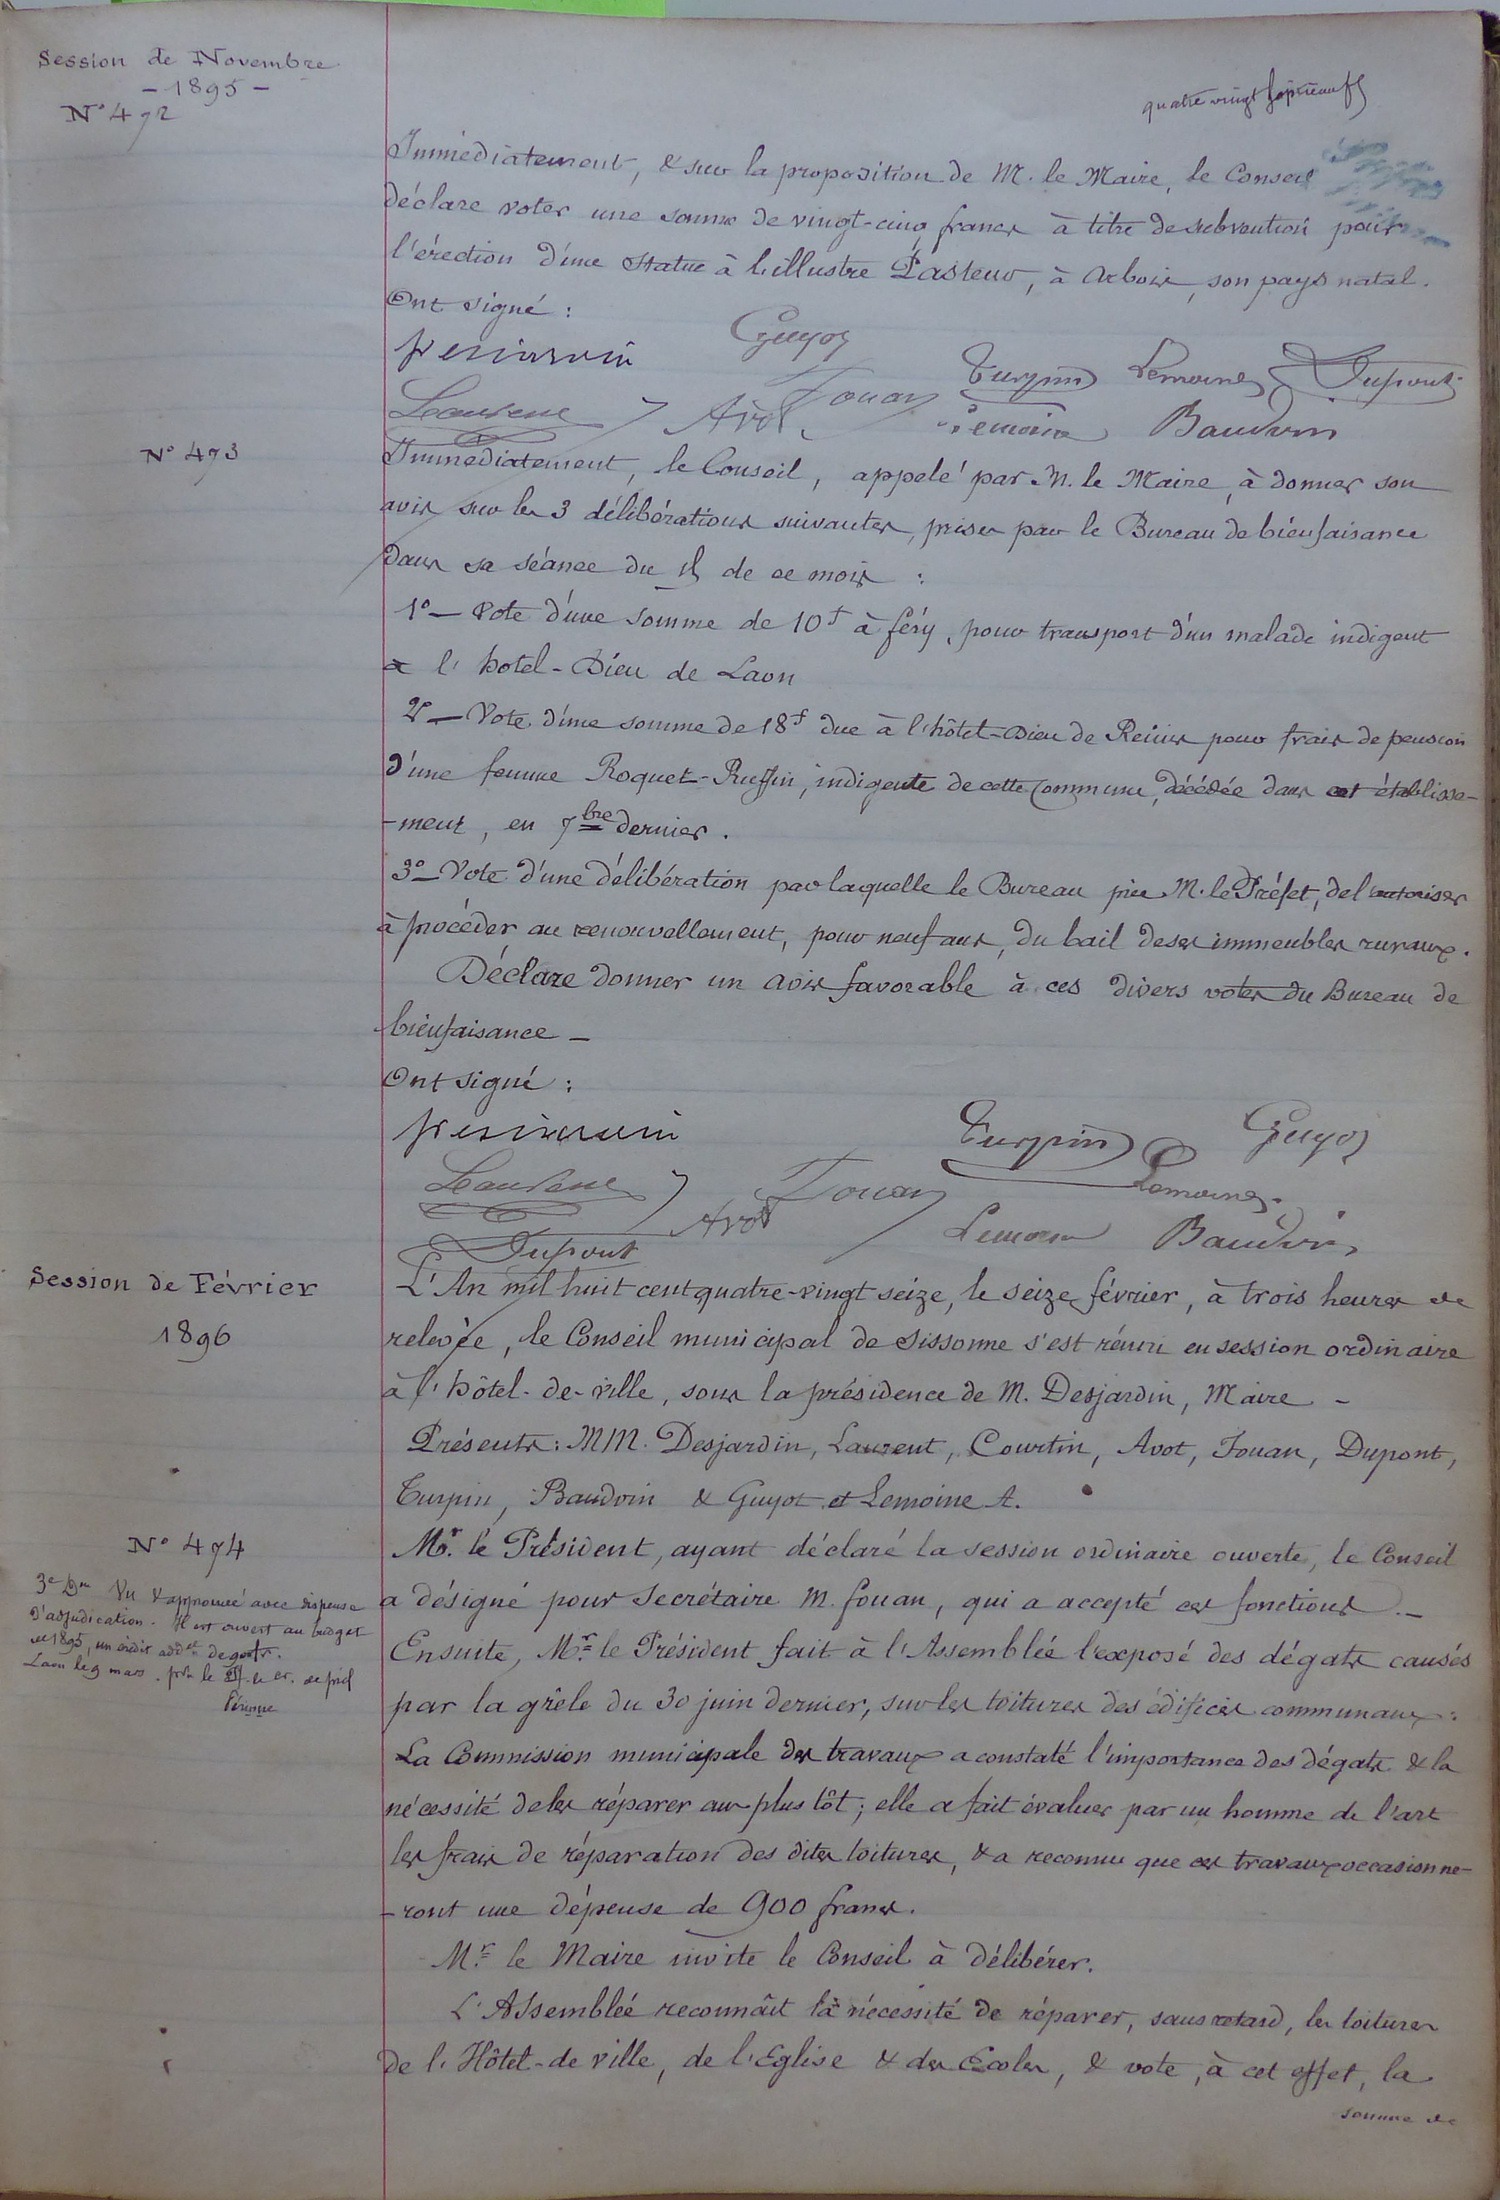 Session de Novembre
- 1895 -
N° 472
quatre vingt
Immédiatement, & sur la proposition de M. le Maire, le Conseil
déclare voter une somme de vingt-cinq francs à titre de subvention pour
l'érection d'une statue à l'illustre Pasteur, à Arbois, son pays natal.
Ont signé :
Guyot
Turpin Lemoine Dupont
Laurent Avot Fouan Lemoine Baudoin
N° 473
Immédiatement, le Conseil, appelé par M. le Maire, à donner son
avis sur les 3 délibérations suivantes, prises par le Bureau de bienfaisance
dans sa séance du de ce mois :
1° — Vote d'une somme de 10f à féry, pour transport d'un malade indigent
à l'hotel-Dieu de Laon
2° — Vote d'une somme de 18f due à l'hôtel-Dieu de Reims pour frais de pension
d'une femme Roquet-Ruffin, indigente de cette Commune, décédée dans cet établisse-
-ment, en 7bre dernier.
3° — Vote d'une délibération par laquelle le Bureau prie M. le Préfet, de l'autoriser
à procéder au renouvellement, pour neuf ans, du bail de ses immeubles ruraux.
Déclare donner un avis favorable à ces divers votes du Bureau de
bienfaisance —
Ont signé :
Turpin Guyot
Laurent Avot Fouan Lemoine
Dupont Lemoine Baudoin
Session de Février
1896
L'An mil huit cent quatre-vingt seize, le seize février, à trois heures de
relevée, le Conseil municipal de Sissonne s'est réuni en session ordinaire
à l'hôtel-de-ville, sous la présidence de M. Desjardin, Maire -
Présents : MM. Desjardin, Laurent, Courtin, Avot, Fouan, Dupont,
Turpin, Baudoin & Guyot et Lemoine A.
N° 474
Mr. le Président, ayant déclaré la session ordinaire ouverte, le Conseil
a désigné pour Secrétaire M. fouan, qui a accepté ces fonctions. —
3e Don Vu & approuvé avec dispense
d'adjudication. Il est ouvert au budget
de 1895, un crédit addel de 900 fr.
Laon le 9 mars. pr le
Ensuite, Mr. le Président fait à l'Assemblée l'exposé des dégats causés
par la grêle du 30 juin dernier, sur les toitures des édifices communaux :
La Commission municipale des travaux a constaté l'importance des dégats & la
nécessité de les réparer au plus tôt ; elle a fait évaluer par un homme de l'art
les frais de réparation des dites toitures, & a reconnu que ces travaux occasionne-
-ront une dépense de 900 francs.
Mr. le Maire invite le Conseil à délibérer.
L'Assemblée reconnaît la nécessité de réparer, sans retard, les toitures
de l'Hôtel-de ville, de l'Eglise & des Ecoles, & vote, à cet effet, la
somme de